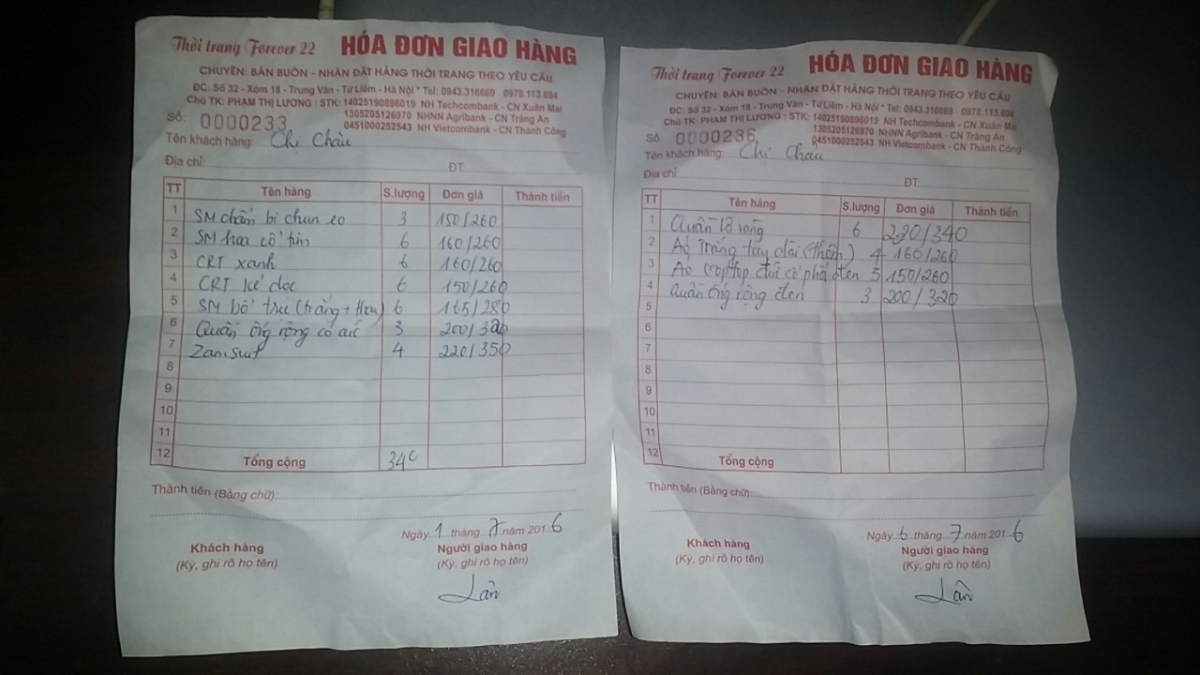 Thời trang Forever 22 HÓA ĐƠN GIAO HÀNG
CHUYÊN: BÁN BUÔN - NHẬN ĐẶT HÀNG THỜI TRANG THEO YÊU CẦU
ĐC: Số 32 - Xóm 18 - Trung Văn - Từ Liêm - Hà Nội * Tel: 0943.316669 0978.113.684
Chủ TK: PHẠM THỊ LƯƠNG : STK: 14025190896019 NH Techcombank - CN Xuân Mai
1305205126970 NHNN Agribank - CN Tràng An
0451000252543 NH Vietcombank - CN Thành Công
Số: 0000233
Tên khách hàng: Chị Châu
Địa chỉ: ĐT:
TT Tên hàng S.lượng Đơn giá Thành tiền
1 SM chấm bi chun eo 3 150/260
2 SM hoa cổ tim 6 160/260
3 CRT xanh 6 160/260
4 CRT kẻ dọc 6 150/260
5 SM bổ trụ (trắng + 6 165/280
6 Quần ống rộng có 3 200/320
7 Zamsuit 4 220/350
8
9
10
11
12 Tổng cộng 34c
Thành tiền (Bằng chữ):
Ngày 1 tháng 7 năm 2016
Khách hàng Người giao hàng
(Ký, ghi rõ họ tên) (Ký, ghi rõ họ tên)
Lân
Thời trang Forever 22 HÓA ĐƠN GIAO HÀNG
CHUYÊN: BÁN BUÔN - NHẬN ĐẶT HÀNG THỜI TRANG THEO YÊU CẦU
ĐC: Số 32 - Xóm 18 - Trung Văn - Từ Liêm - Hà Nội * Tel: 0943.316669 0978.113.684
Chủ TK: PHẠM THỊ LƯƠNG : STK: 14025190896019 NH Techcombank - CN Xuân Mai
1305205126970 NHNN Agribank - CN Tràng An
0451000252543 NH Vietcombank - CN Thành Công
Số: 0000236
Tên khách hàng: Chị Chau
Địa chỉ: ĐT:
TT Tên hàng S.lượng Đơn giá Thành tiền
1 Quần lỡ 6 220/340
2 Áo trắng tay dài (thêm) 4 160/260
3 Áo croptop đũi cổ phối đen 5 150/260
4 Quần ống rộng đen 3 200/320
5
6
7
8
9
10
11
12 Tổng cộng
Thành tiền (Bằng chữ):
Ngày 6 tháng 7 năm 2016
Khách hàng Người giao hàng
(Ký, ghi rõ họ tên) (Ký, ghi rõ họ tên)
Lân